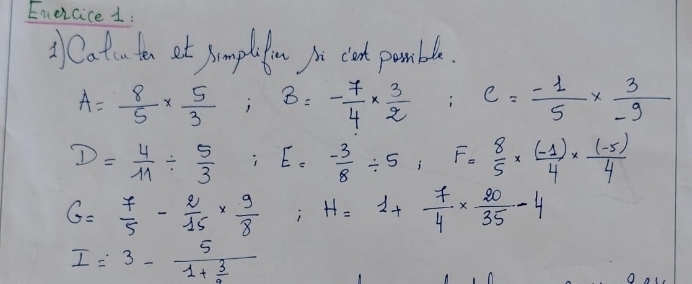 Exercice 1:
1) Calculer et simplifier si c'est possible.
A = 8/5 × 5/3 ; B = -7/4 × 3/2 ; C = -1/5 × 3/-9
D = 4/11 ÷ 5/3 ; E = -3/8 ÷ 5 ; F = 8/5 × (-1)/4 × (-5)/4
G = 7/5 - 2/15 × 9/8 ; H = 1 + 7/4 × 20/35 - 4
I = 3 - 5/(1 + 3/